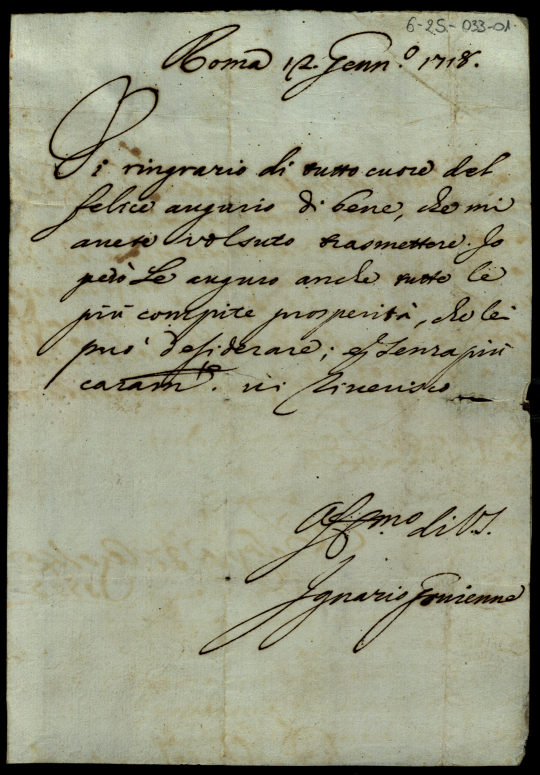 6-25-033-01.
Roma 12. Genn.º 1718.
Vi ringrazio di tutto cuore del
felice augurio di bene, che mi
avete volsuto trasmettere. Io
però Le auguro anche tutte le
più compite prosperità, che lei
può desiderare; e senza più
caram.te vi riverisco
Aff.mo di VS.
Ignazio